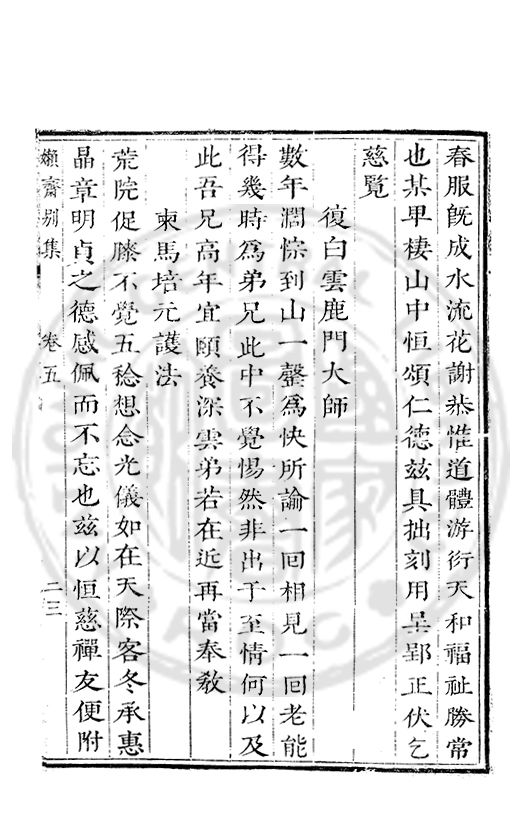 春服旣成水流花謝恭惟道體游衍天和福祉勝常
也某早棲山中恒頌仁德兹具拙刻用呈郢正伏乞
慈覽
復白雲鹿門大師
數年濶悰到山一罄爲快所論一囘相見一囘老能
得幾時爲弟兄此中不覺惕然非出于至情何以及
此吾兄高年宜頤養深雲弟若在近再當奉敎
柬馬培元護法
荒院促膝不覺五稔想念光儀如在天際客冬承惠
晶章明貞之德感佩而不忘也兹以恒慈禪友便附
嬾齋别集
卷五
二三